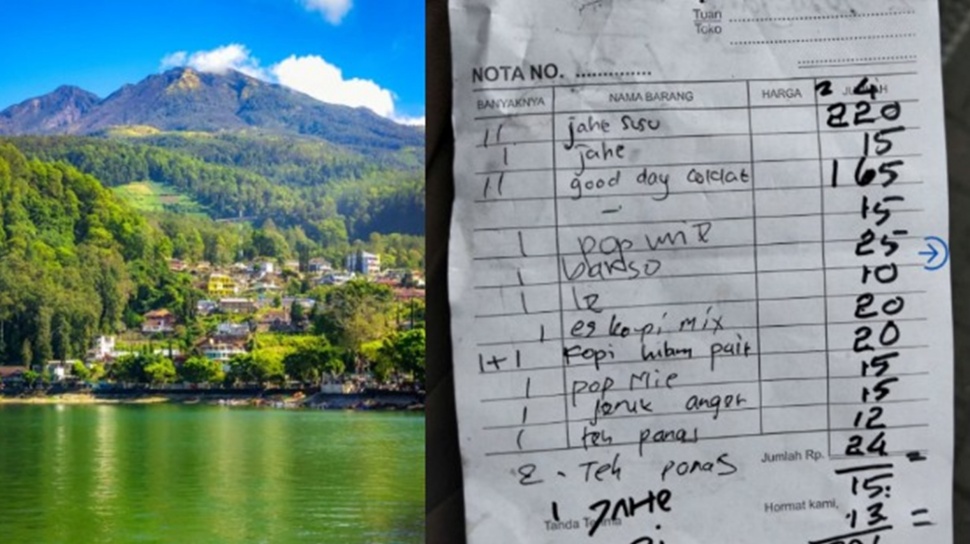 Tuan
Toko
NOTA NO.
BANYAKNYA NAMA BARANG HARGA
2 4
11 jahe susu 220
1 jahe 15
11 good day coklat 165
- 15
1 pop mie 25
1 bakso 10
1 20
1 es kopi mix 20
1+1 Kopi hitam pait 15
1 pop Mie 15
1 jeruk anget 12
1 teh panas 24 =
Jumlah Rp.
2 - Teh panas 15
1 JAHE
Hormat kami, 13 =
Tanda Terima